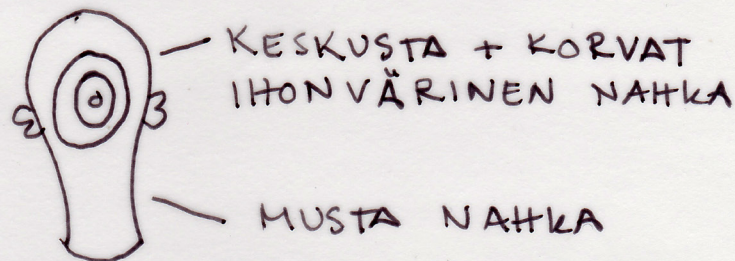 KESKUSTA + KORVAT
IHONVÄRINEN NAHKA
MUSTA NAHKA